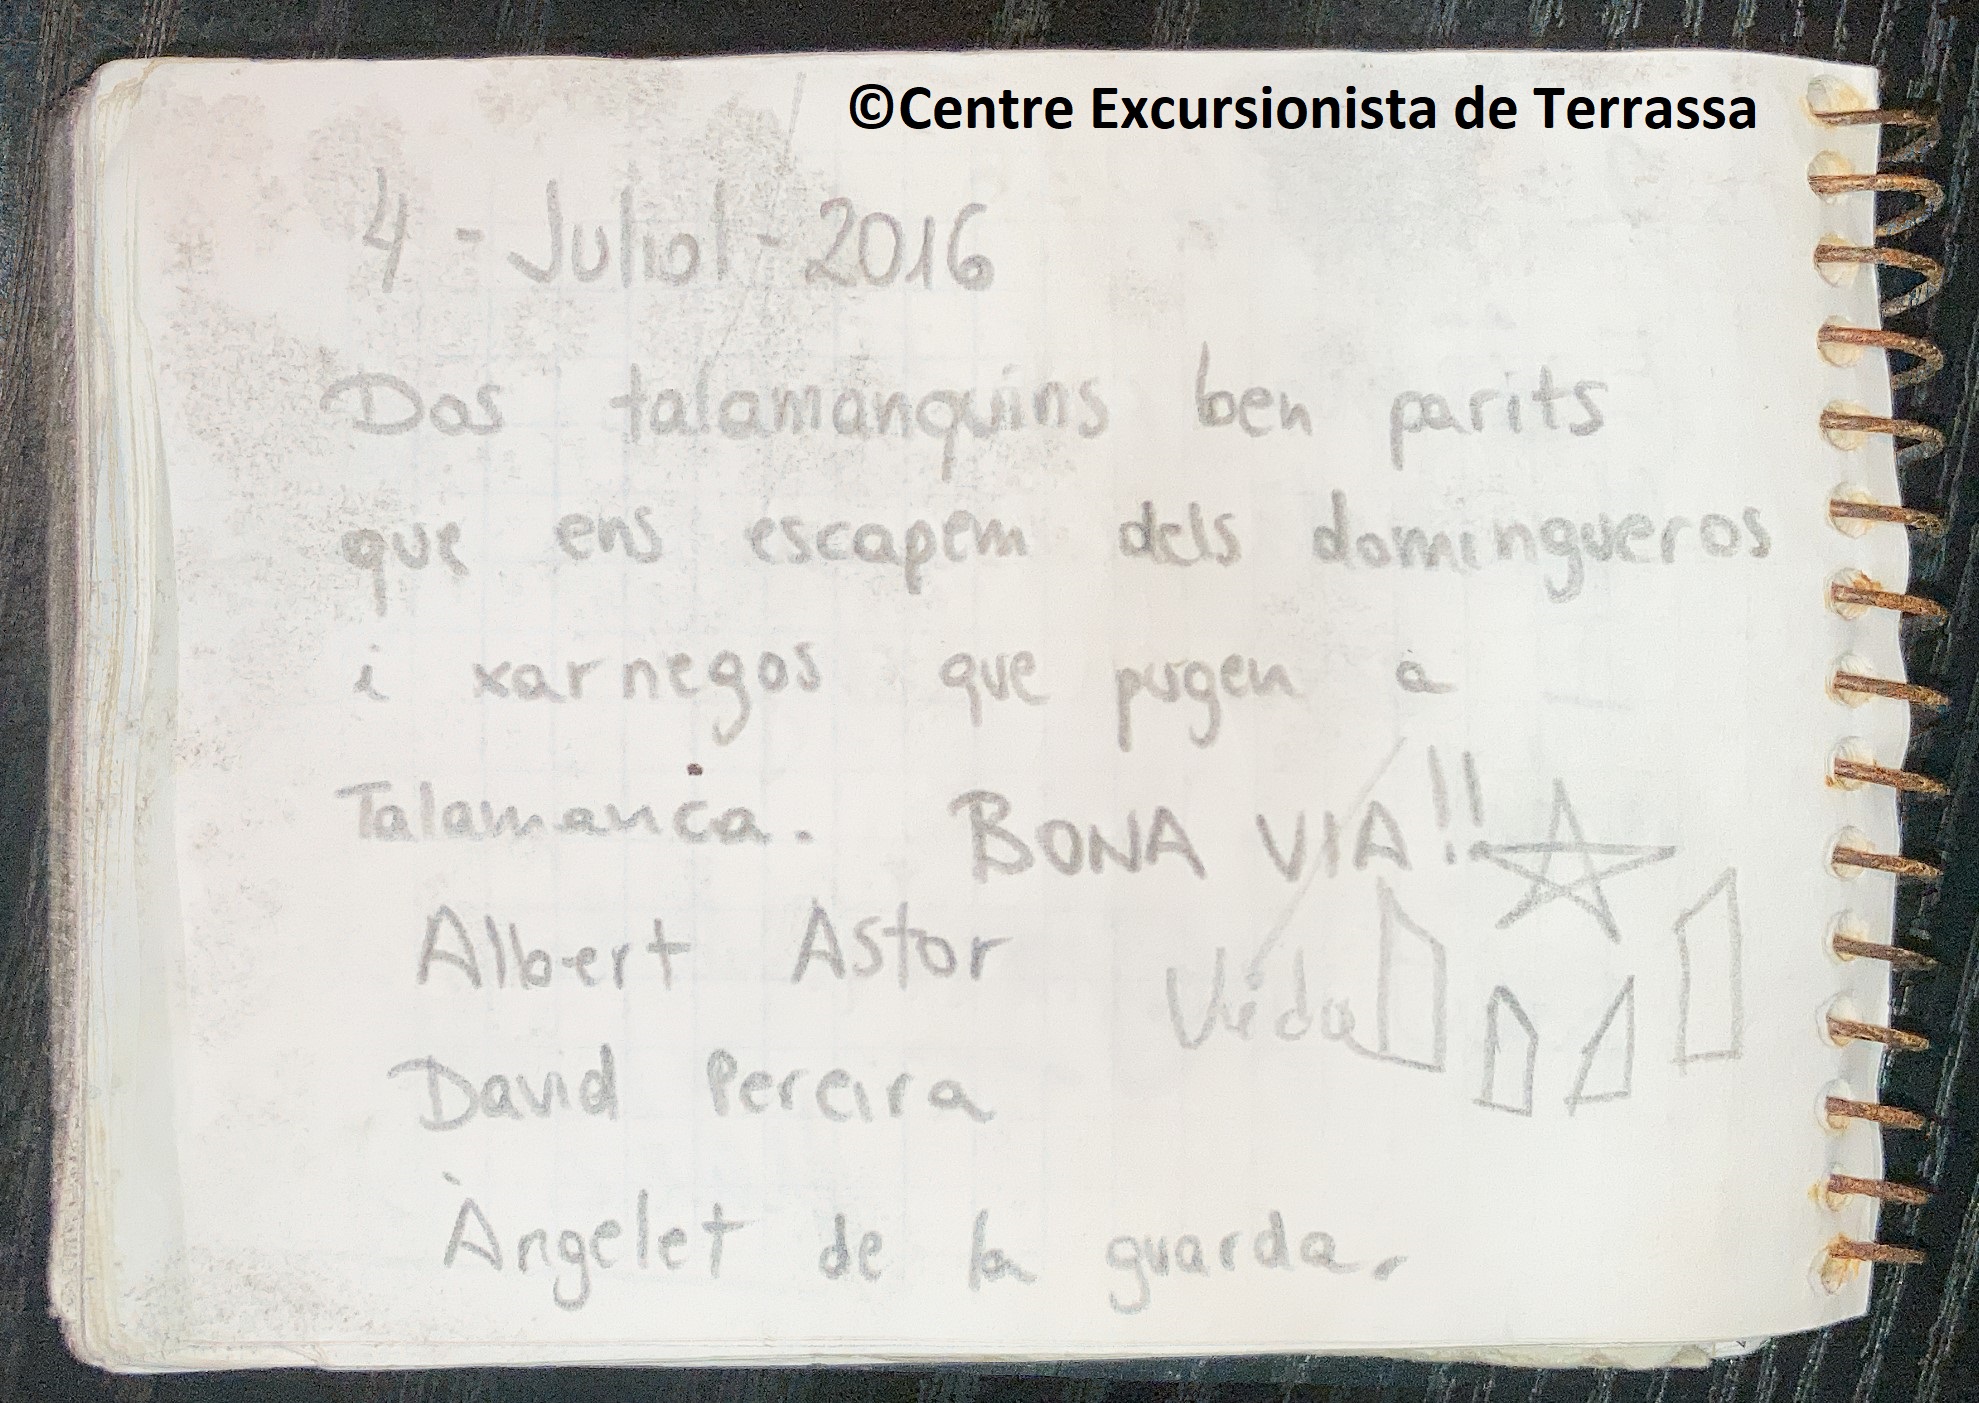 ©Centre Excursionista de Terrassa
4 - Juliol - 2016
Dos talamanquins ben parits
que ens escapem dels domingueros
i xarnegos que pugen a
Talamanca. BONA VIA!!
Albert Astor
Vida
David Pereira
Àngelet de la guarda.